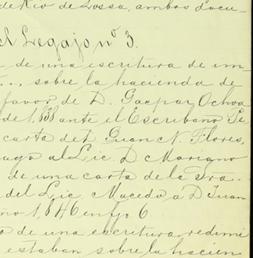 de Rio de Lossa, ambos docu-
Legajo nº 3.
de una escritura de un
sobre la hacienda de
favor de D. Gaspar Ochoa
de 1838 ante el Escribano
carta de D. Juan N. Flores,
al Lic. D. Mariano
de una carta de la Sra.
del Lic Macedo a D Juan
1,846 en fs 6
de una escritura redimi
estaban sobre la hacien